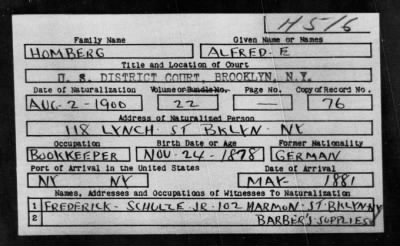 H516
Family Name Given Name or Names
HOMBERG ALFRED. E
Title and Location of Court
U. S. DISTRICT COURT, BROOKLYN, N.Y.
Date of Naturalization Volume or Bundle No. Page No. Copy of Record No.
AUG-2-1900 22 — 76
Address of Naturalized Person
118 LYNCH. ST BKLYN. NY
Occupation Birth Date or Age Former Nationality
BOOKKEEPER NOV-24-1878 GERMAN
Port of Arrival in the United States Date of Arrival
NY NY MAY- 1881
Names, Addresses and Occupations of Witnesses To Naturalization
1 FREDERICK- SCHULZE JR-102 HARMON-ST-BKLYN NY
2 BARBER'S SUPPLIES